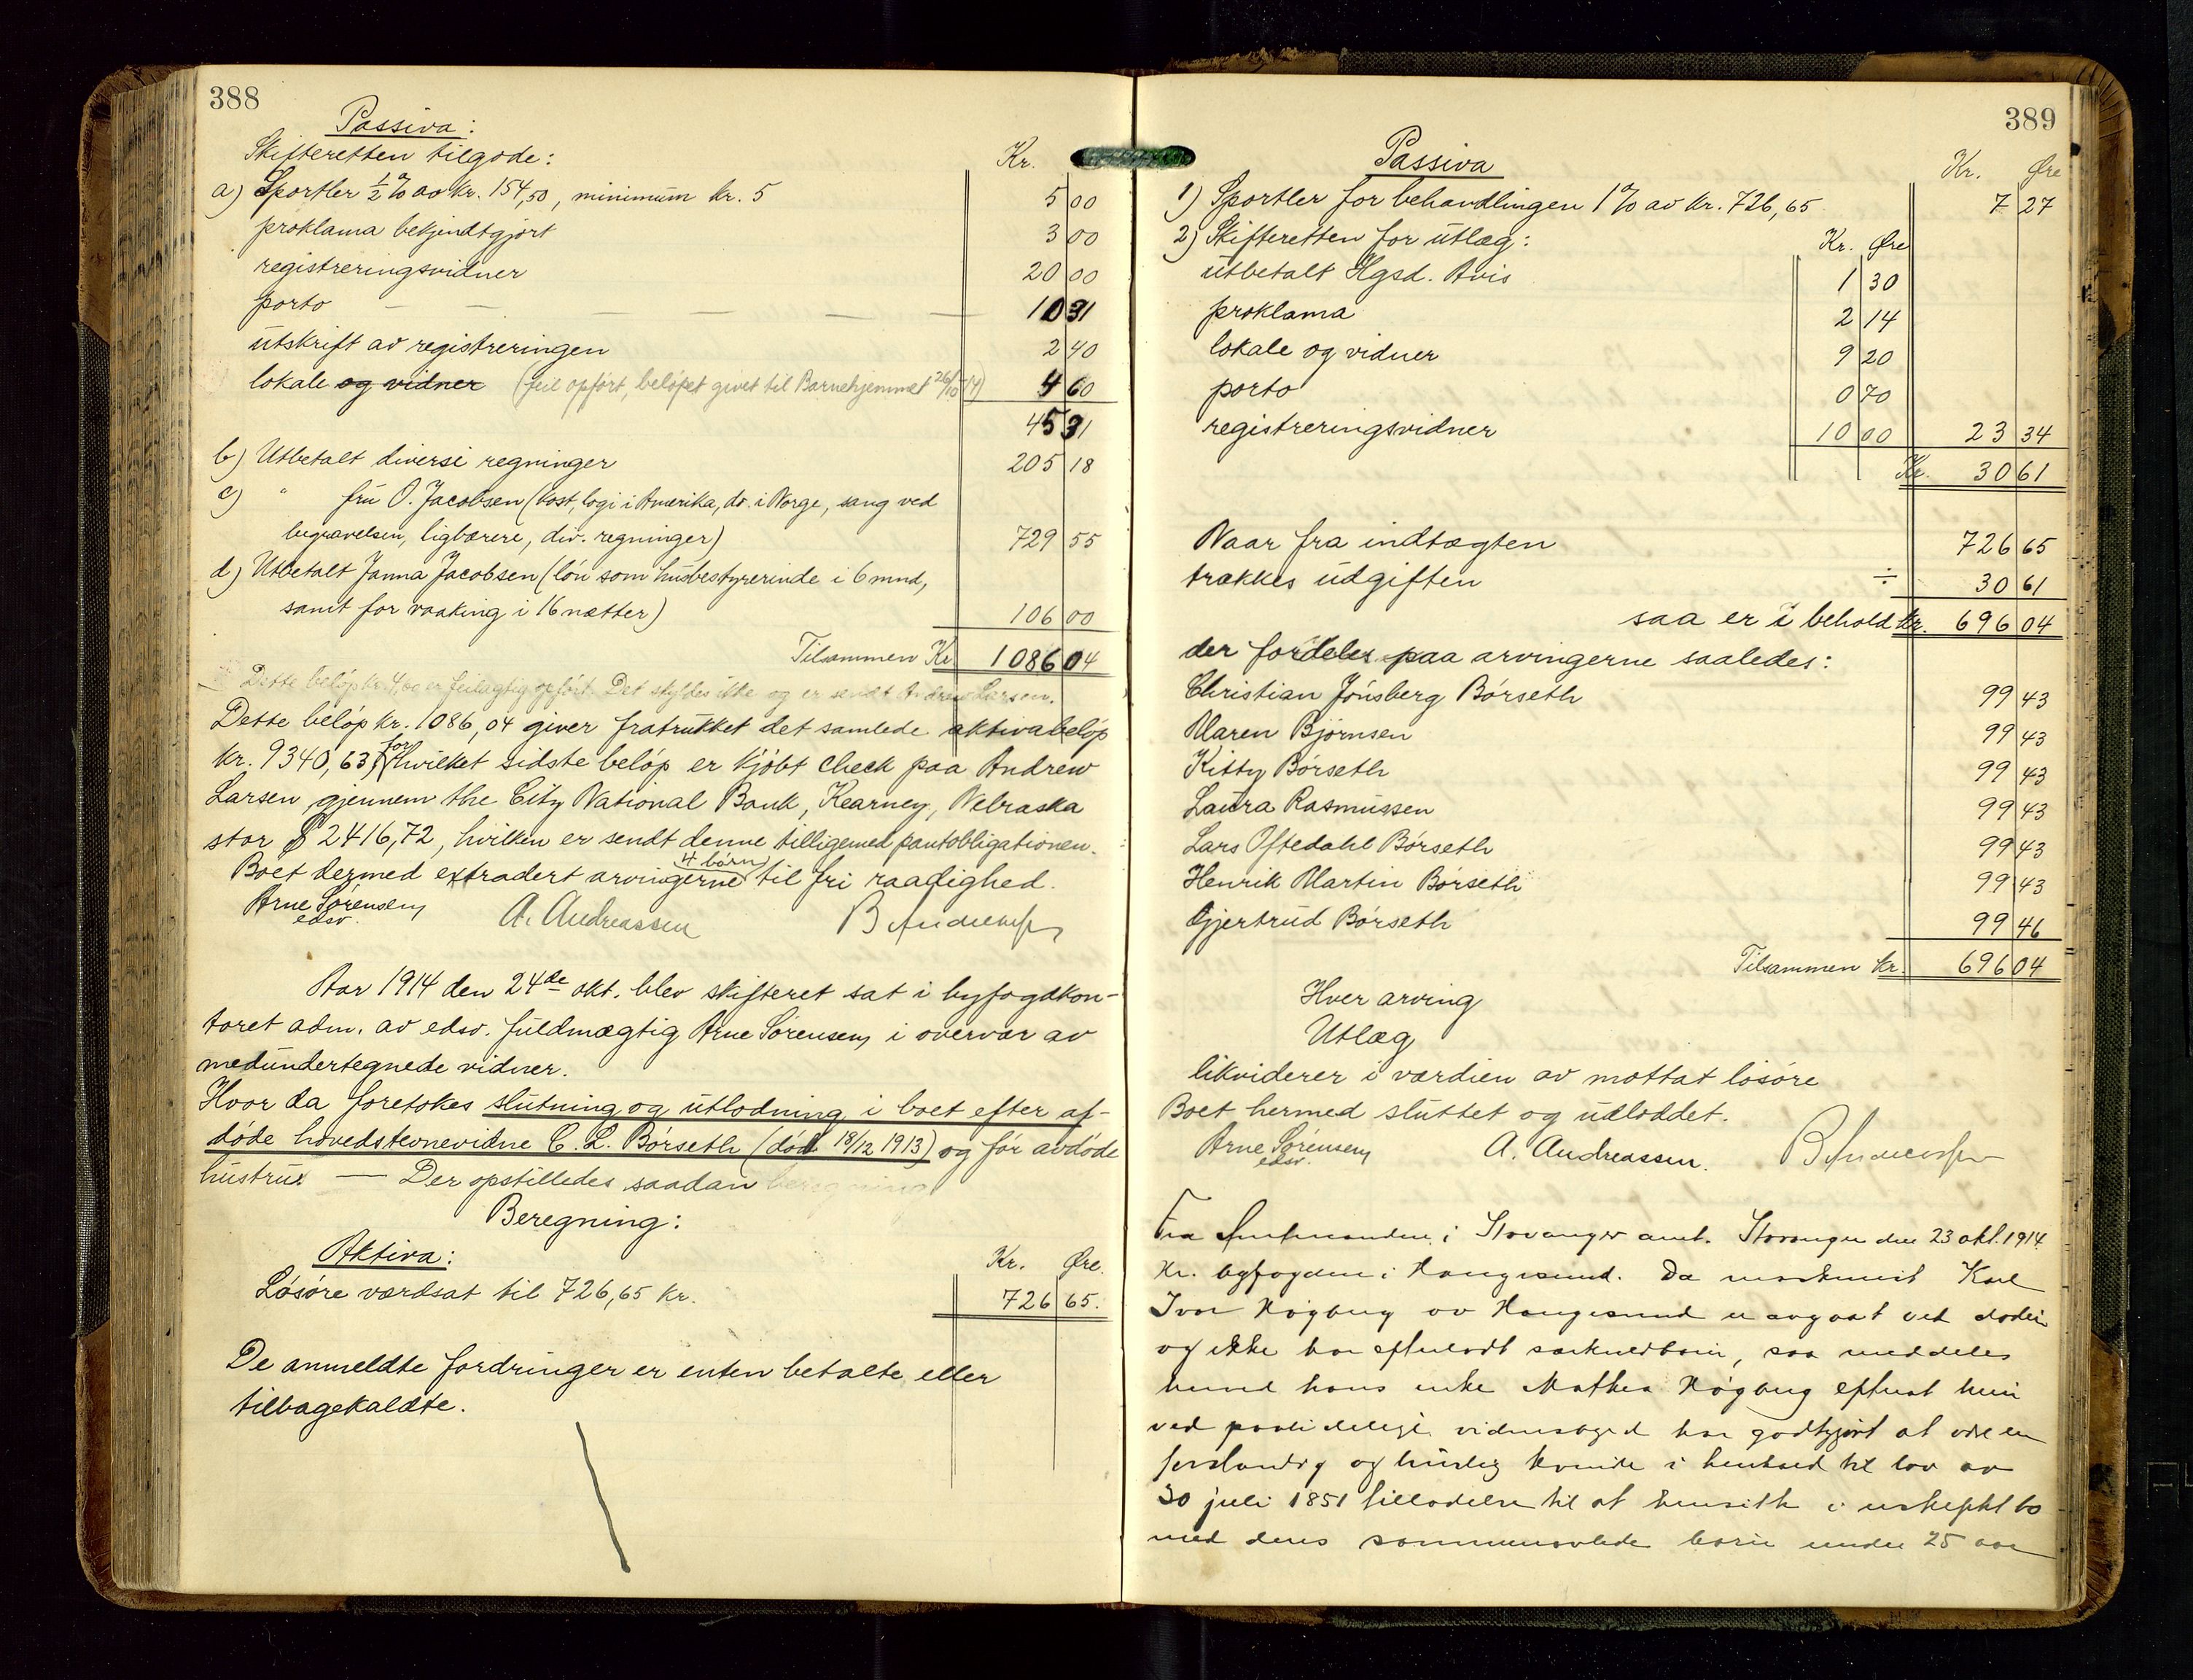 388
Passiva:
Skifteretten tilgode:
Kr.
a) Sportler ½ % av kr. 154,50, minimum kr. 5 5 00
proklama bekjendtgjort 3 00
registreringsvidner 20 00
porto — — — — — 10 31
utskrift av registreringen 2 40
lokale og vidner (feil opført, beløpet givet til Barnehjemmet 26/10 14) 4 60
45 31
b) Utbetalt diverse regninger 205 18
c) " fru O. Jacobsen (kost, logi i Amerika, do. i Norge, sang ved
begravelsen, ligbærere, div. regninger) 729 55
d) Utbetalt Janna Jacobsen (løn som husbestyrerinde i 6 mnd,
samt for vaaking i 16 nætter) 106 00
Tilsammen Kr 1086 04
Dette beløp kr. 4,60 er feilagtig opført. Det skyldes ikke og er sendt Andrew Larsen.
Dette beløp kr. 1086,04 giver fratrukket det samlede aktivabeløp
kr. 9340,63, for hvilket sidste beløp er kjøbt check paa Andrew
Larsen gjennem the City National Bank, Kearney, Nebraska
stor $ 2416,72, hvilken er sendt denne tilligemed pantobligationen.
Boet dermed extradert arvingerne 4 børn til fri raadighed.
Arne Sørensen
edsv.
A. Andreassen
B Andersen
Aar 1914 den 24de okt. blev skifteret sat i byfogdkon-
toret adm. av edsv. fuldmægtig Arne Sørensen i overvær av
medundertegnede vidner.
Hvor da foretokes slutning og utlodning i boet efter af-
døde hovedstevnevidne C. L. Børseth (død 18/12 1913) og før avdøde
hustru. — Der opstilledes saadan beregning
Beregning:
Aktiva:
Kr. Øre.
Løsøre værdsat til 726,65 kr. 726 65.
De anmeldte fordringer er enten betalte eller
tilbagekaldte.
389
Passiva
Kr. Øre
1) Sportler for behandlingen 1 % av kr. 726,65 7 27
2) Skifteretten for utlæg: Kr. Øre
utbetalt Hgsd. Avis 1 30
proklama 2 14
lokale og vidner 9 20
porto 0 70
registreringsvidner 10 00 23 34
Kr. 30 61
Naar fra indtægten 726 65
trækkes udgiften ÷ 30 61
saa er i behold kr. 696 04
der fordeles paa arvingerne saaledes:
Christian Jønsberg Børseth 99 43
Maren Bjørnsen 99 43
Kitty Børseth 99 43
Laura Rasmussen 99 43
Lars Oftedahl Børseth 99 43
Henrik Martin Børseth 99 43
Gjertrud Børseth 99 46
Tilsammen kr. 696 04
Hver arving
Utlæg
likviderer i værdien av mottat løsøre
Boet hermed sluttet og udloddet.
Arne Sørensen
edsv.
A. Andreassen.
B Andersen
Fra Amtmanden i Stavanger amt. Stavanger den 23 okt. 1914.
Hr. byfogden i Haugesund. Da maskinist Karl
Ivar Høgberg av Haugesund er avgaat ved døden
og ikke har efterladt særkuldbørn, saa meddeles
herved hans enke Mathea Høgberg efterat hun
ved paalidelige vidnesbyrd har godtgjørt at være en
forstandig og huslig kvinde i henhold til lov av
30 juli 1851 tilladelse til at hensitte i uskiftet bo
med deres sammenavlede børn under 25 aar